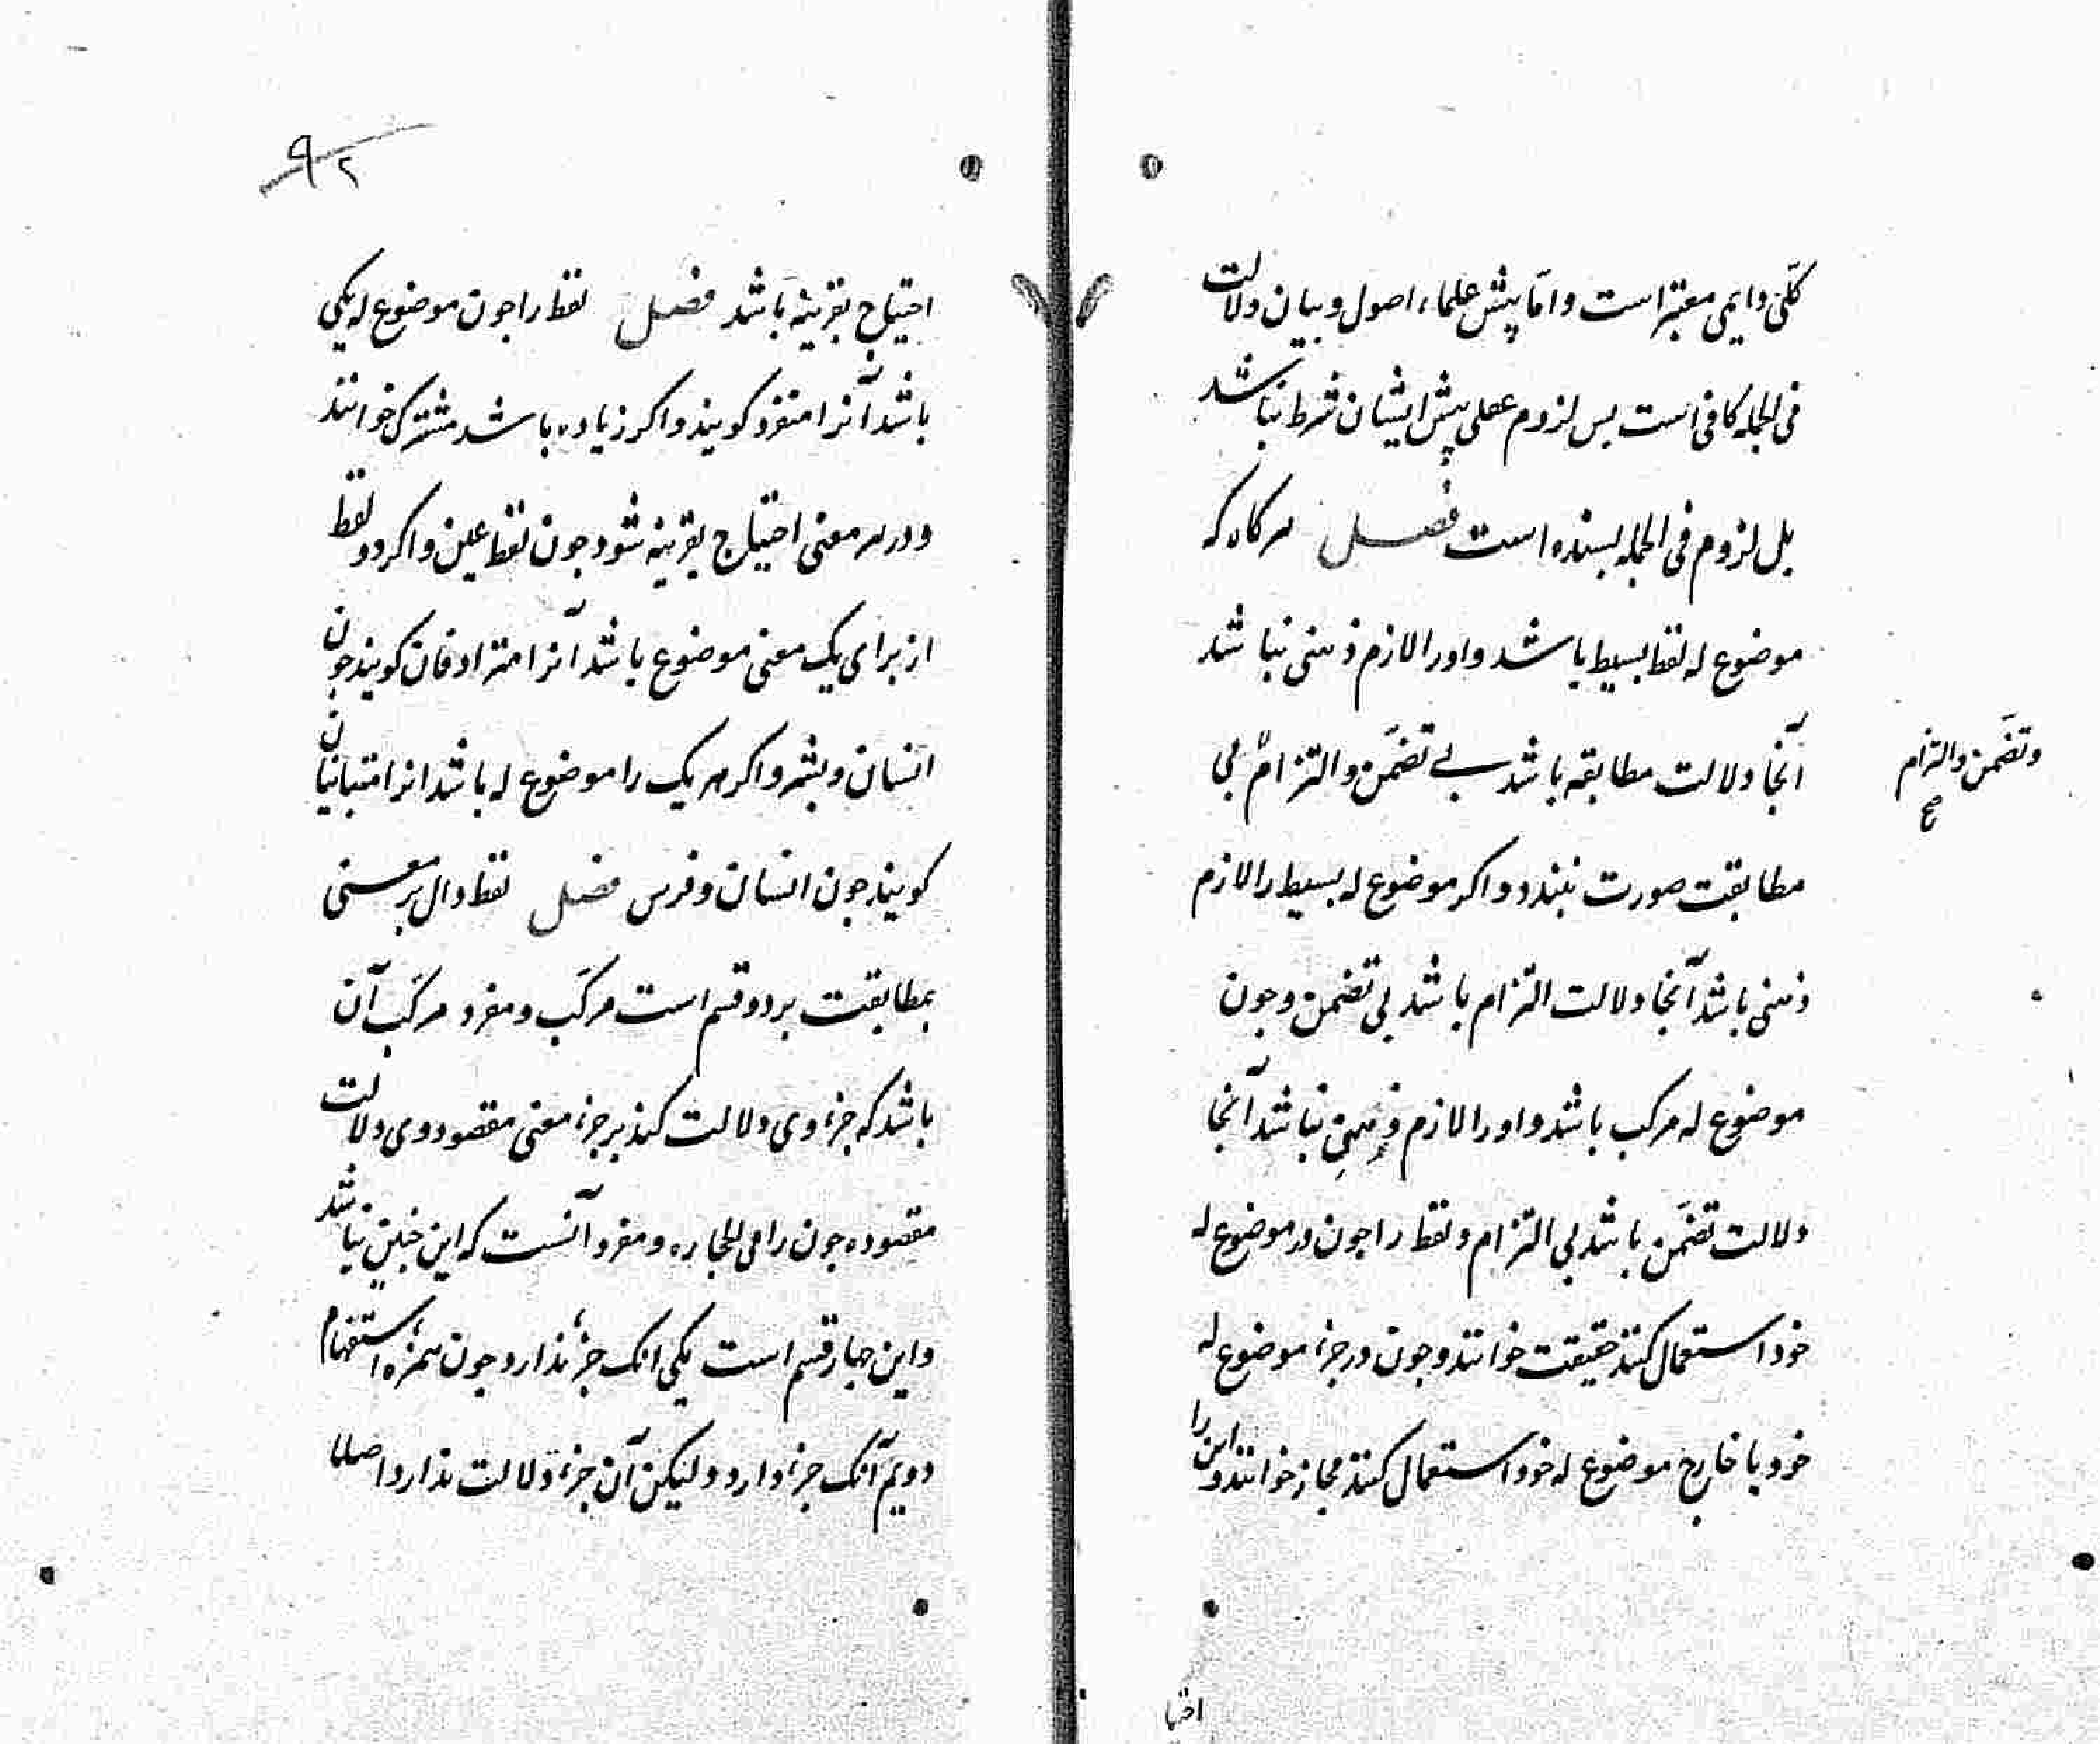 کلّی دایمی معتبر است و امّا پیش علماء اصول و بیان دلالت
فی الجمله کافی است پس لزوم عقلی پیش ایشان شرط نباشد
بل لزوم فی الجمله بسنده است فصل هرکاه که
موضوع له لفظ بسیط باشد و اورا لازم ذهنی نباشد
آنجا دلالت مطابقه باشد بی تضمّن و التزام بی
و تضمّن و التزام
صح
مطابقت صورت نبندد و اکر موضوع له بسیط را لازم
ذهنی باشد آنجا دلالت التزام باشد بی تضمن و جون
موضوع له مرکب باشد و اورا لازم ذهنی نباشد آنجا
دلالت تضمّن باشد بی التزام و لفظ را جون در موضوع له
خود استعمال کنند حقیقت خوانند و جون در جزء موضوع له
خود یا خارج موضوع له خود استعمال کنند مجاز خوانند و این را
احتیا
۹۲
احتیاج بقرینه باشد فصل لفظ را جون موضوع له یکی
باشد آنرا منفرد کویند و اکر زیاده باشد مشترک خوانند
و در هر معنی احتیاج بقرینه شود جون لفظ عین و اکر دو لفظ
از برای یک معنی موضوع باشد آنرا مترادفان کویند جون
انسان و بشر و اکر هر یک را موضوع له باشد انرا متباینان
کویند جون انسان و فرس فصل لفظ دال بر معنی
بمطابقت بر دو قسم است مرکّب و مفرد مرکّب آن
باشد که جزء وی دلالت کند بر جزء معنی مقصود وی دلالت
مقصوده جون رامی الحجاره و مفرد آنست که این جنین نباشد
و این جهار قسم است یکی انک جزء ندارد جون همزه استفهام
دویم آنک جزء دارد ولیکن آن جزء دلالت ندارد اصلا